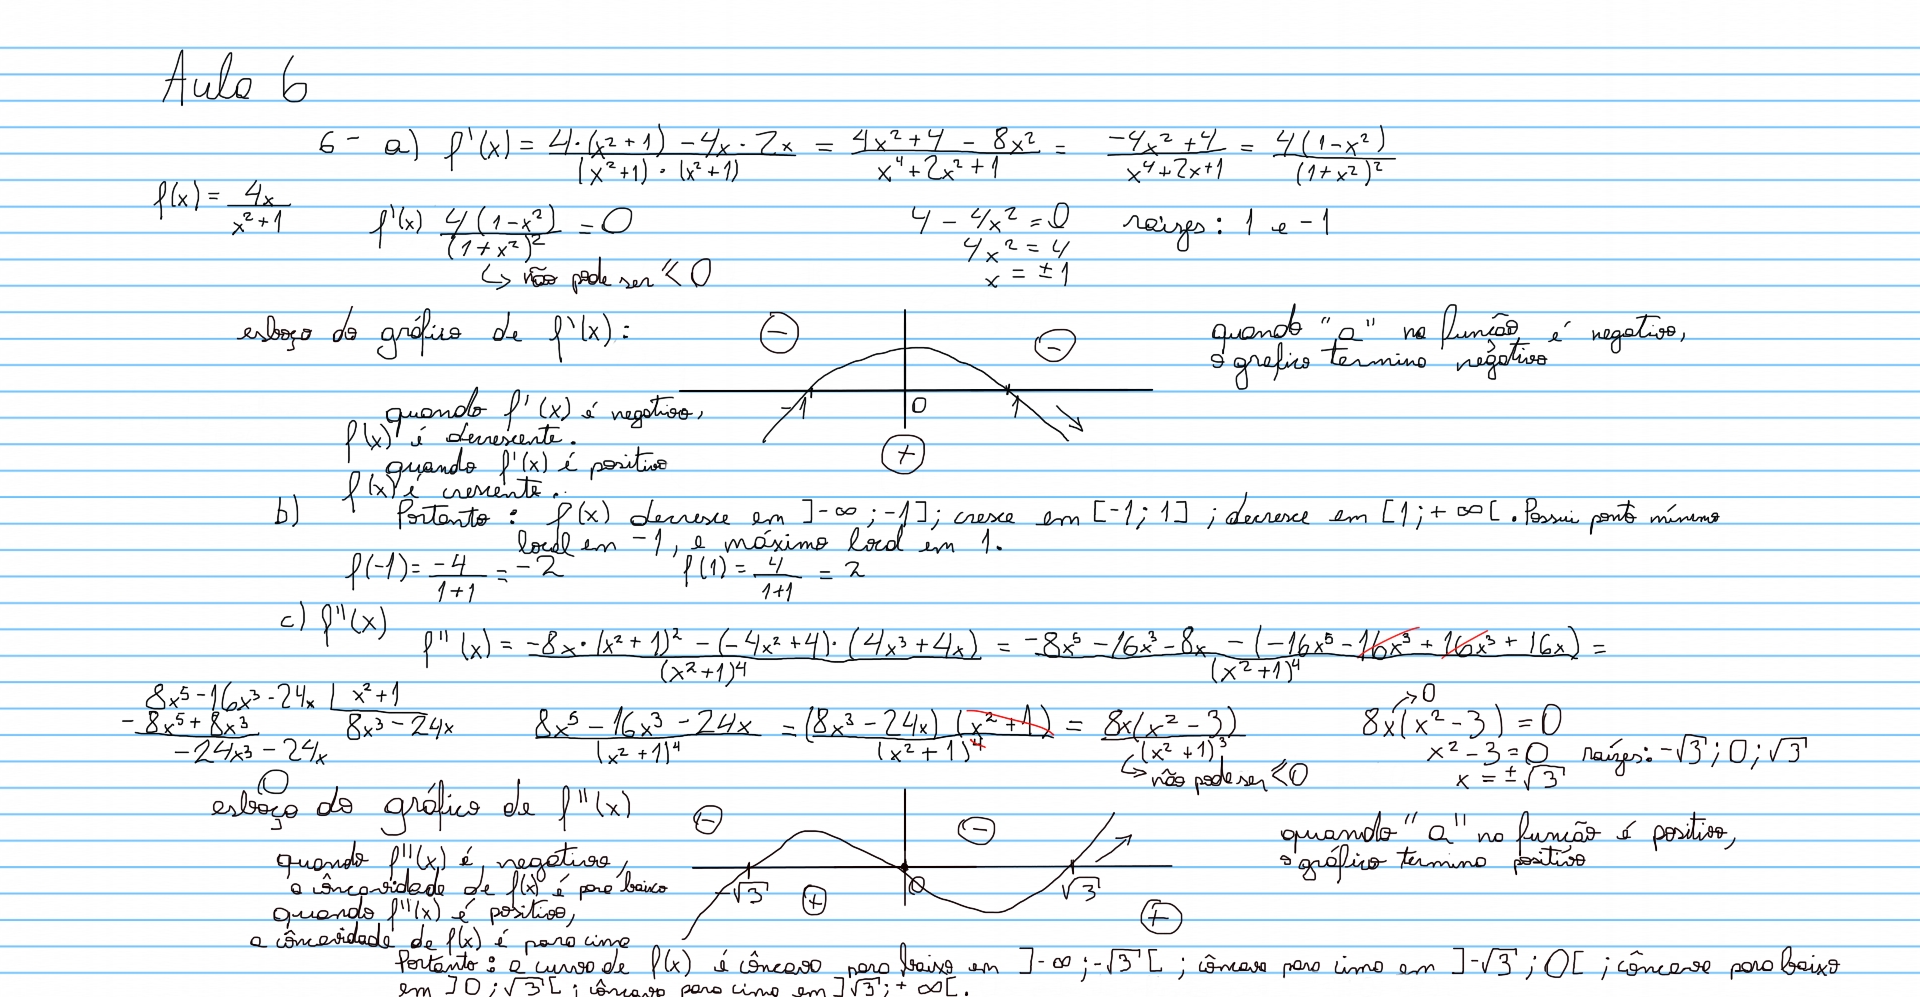 Aula 6
6- a) f'(x) = 4·(x²+1) - 4x·2x / (x²+1)·(x²+1) = 4x²+4 - 8x² / x⁴+2x²+1 = -4x²+4 / x⁴+2x+1 = 4(1-x²) / (1+x²)²
f(x) = 4x / x²+1
f'(x) 4(1-x²) / (1+x²)² = 0
4 - 4x² = 0 raízes: 1 e -1
4x² = 4
↳ não pode ser ≤ 0
x = ±1
esboço do gráfico de f'(x):
- -
quando "a" na função é negativo,
o grafico termina negativo
-1 0 1
+
quando f'(x) é negativo,
f(x) é decrescente.
quando f'(x) é positivo
f(x) é crescente.
b) Portanto: f(x) decresce em ]-∞;-1]; cresce em [-1;1]; decresce em [1;+∞[. Possui ponto mínimo
local em -1, e máximo local em 1.
f(-1) = -4 / 1+1 = -2 f(1) = 4 / 1+1 = 2
c) f''(x)
f''(x) = -8x·(x²+1)² - (-4x²+4)·(4x³+4x) / (x²+1)⁴ = -8x⁵ - 16x³ - 8x - (-16x⁵ - 16x³ + 16x³ + 16x) / (x²+1)⁴ =
8x⁵ - 16x³ - 24x | x²+1
-8x⁵ + 8x³ 8x³ - 24x
-24x³ - 24x
0
8x⁵ - 16x³ - 24x / (x²+1)⁴ = (8x³ - 24x) (x²+1) / (x²+1)⁴ = 8x(x² - 3) / (x²+1)³
↳ não pode ser ≤ 0
→0
8x(x² - 3) = 0
x² - 3 = 0 raízes: -√3; 0; √3
x = ±√3
esboço do gráfico de f''(x)
- -
quando "a" na função é positivo,
o gráfico termina positivo
-√3 + 0 √3 +
quando f''(x) é negativo,
a côncavidade de f(x) é para baixo
quando f''(x) é positivo,
a côncavidade de f(x) é para cima
Portanto: a curva de f(x) é côncava para baixo em ]-∞;-√3[; côncava para cima em ]-√3;0[; côncava para baixo
em ]0;√3[; côncava para cima em ]√3;+∞[.